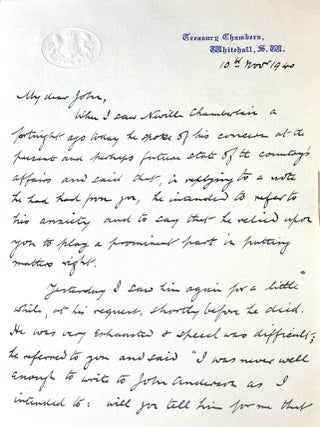 Treasury Chambers,
Whitehall, S.W.
10th Novr 1940
My dear John,
When I saw Neville Chamberlain a
fortnight ago today he spoke of his concern at the
present and perhaps future state of the country's
affairs and said that, in replying to a note
he had had from you, he intended to refer to
his anxiety and to say that he relied upon
you to play a prominent part in putting
matters right.
Yesterday I saw him again for a little
while, at his request, shortly before he died.
He was very exhausted & speech was difficult;
he referred to you and said "I was never well
enough to write to John Anderson as I
intended to: will you tell him for me that